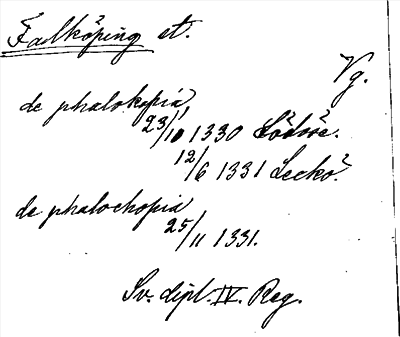 Falköping st.
Vg.
de phalokopia
23/10 1330 Lödöse.
12/6 1331 Leckö.
de phalochopia
25/11 1331.
Sv. dipl. IV. Reg.